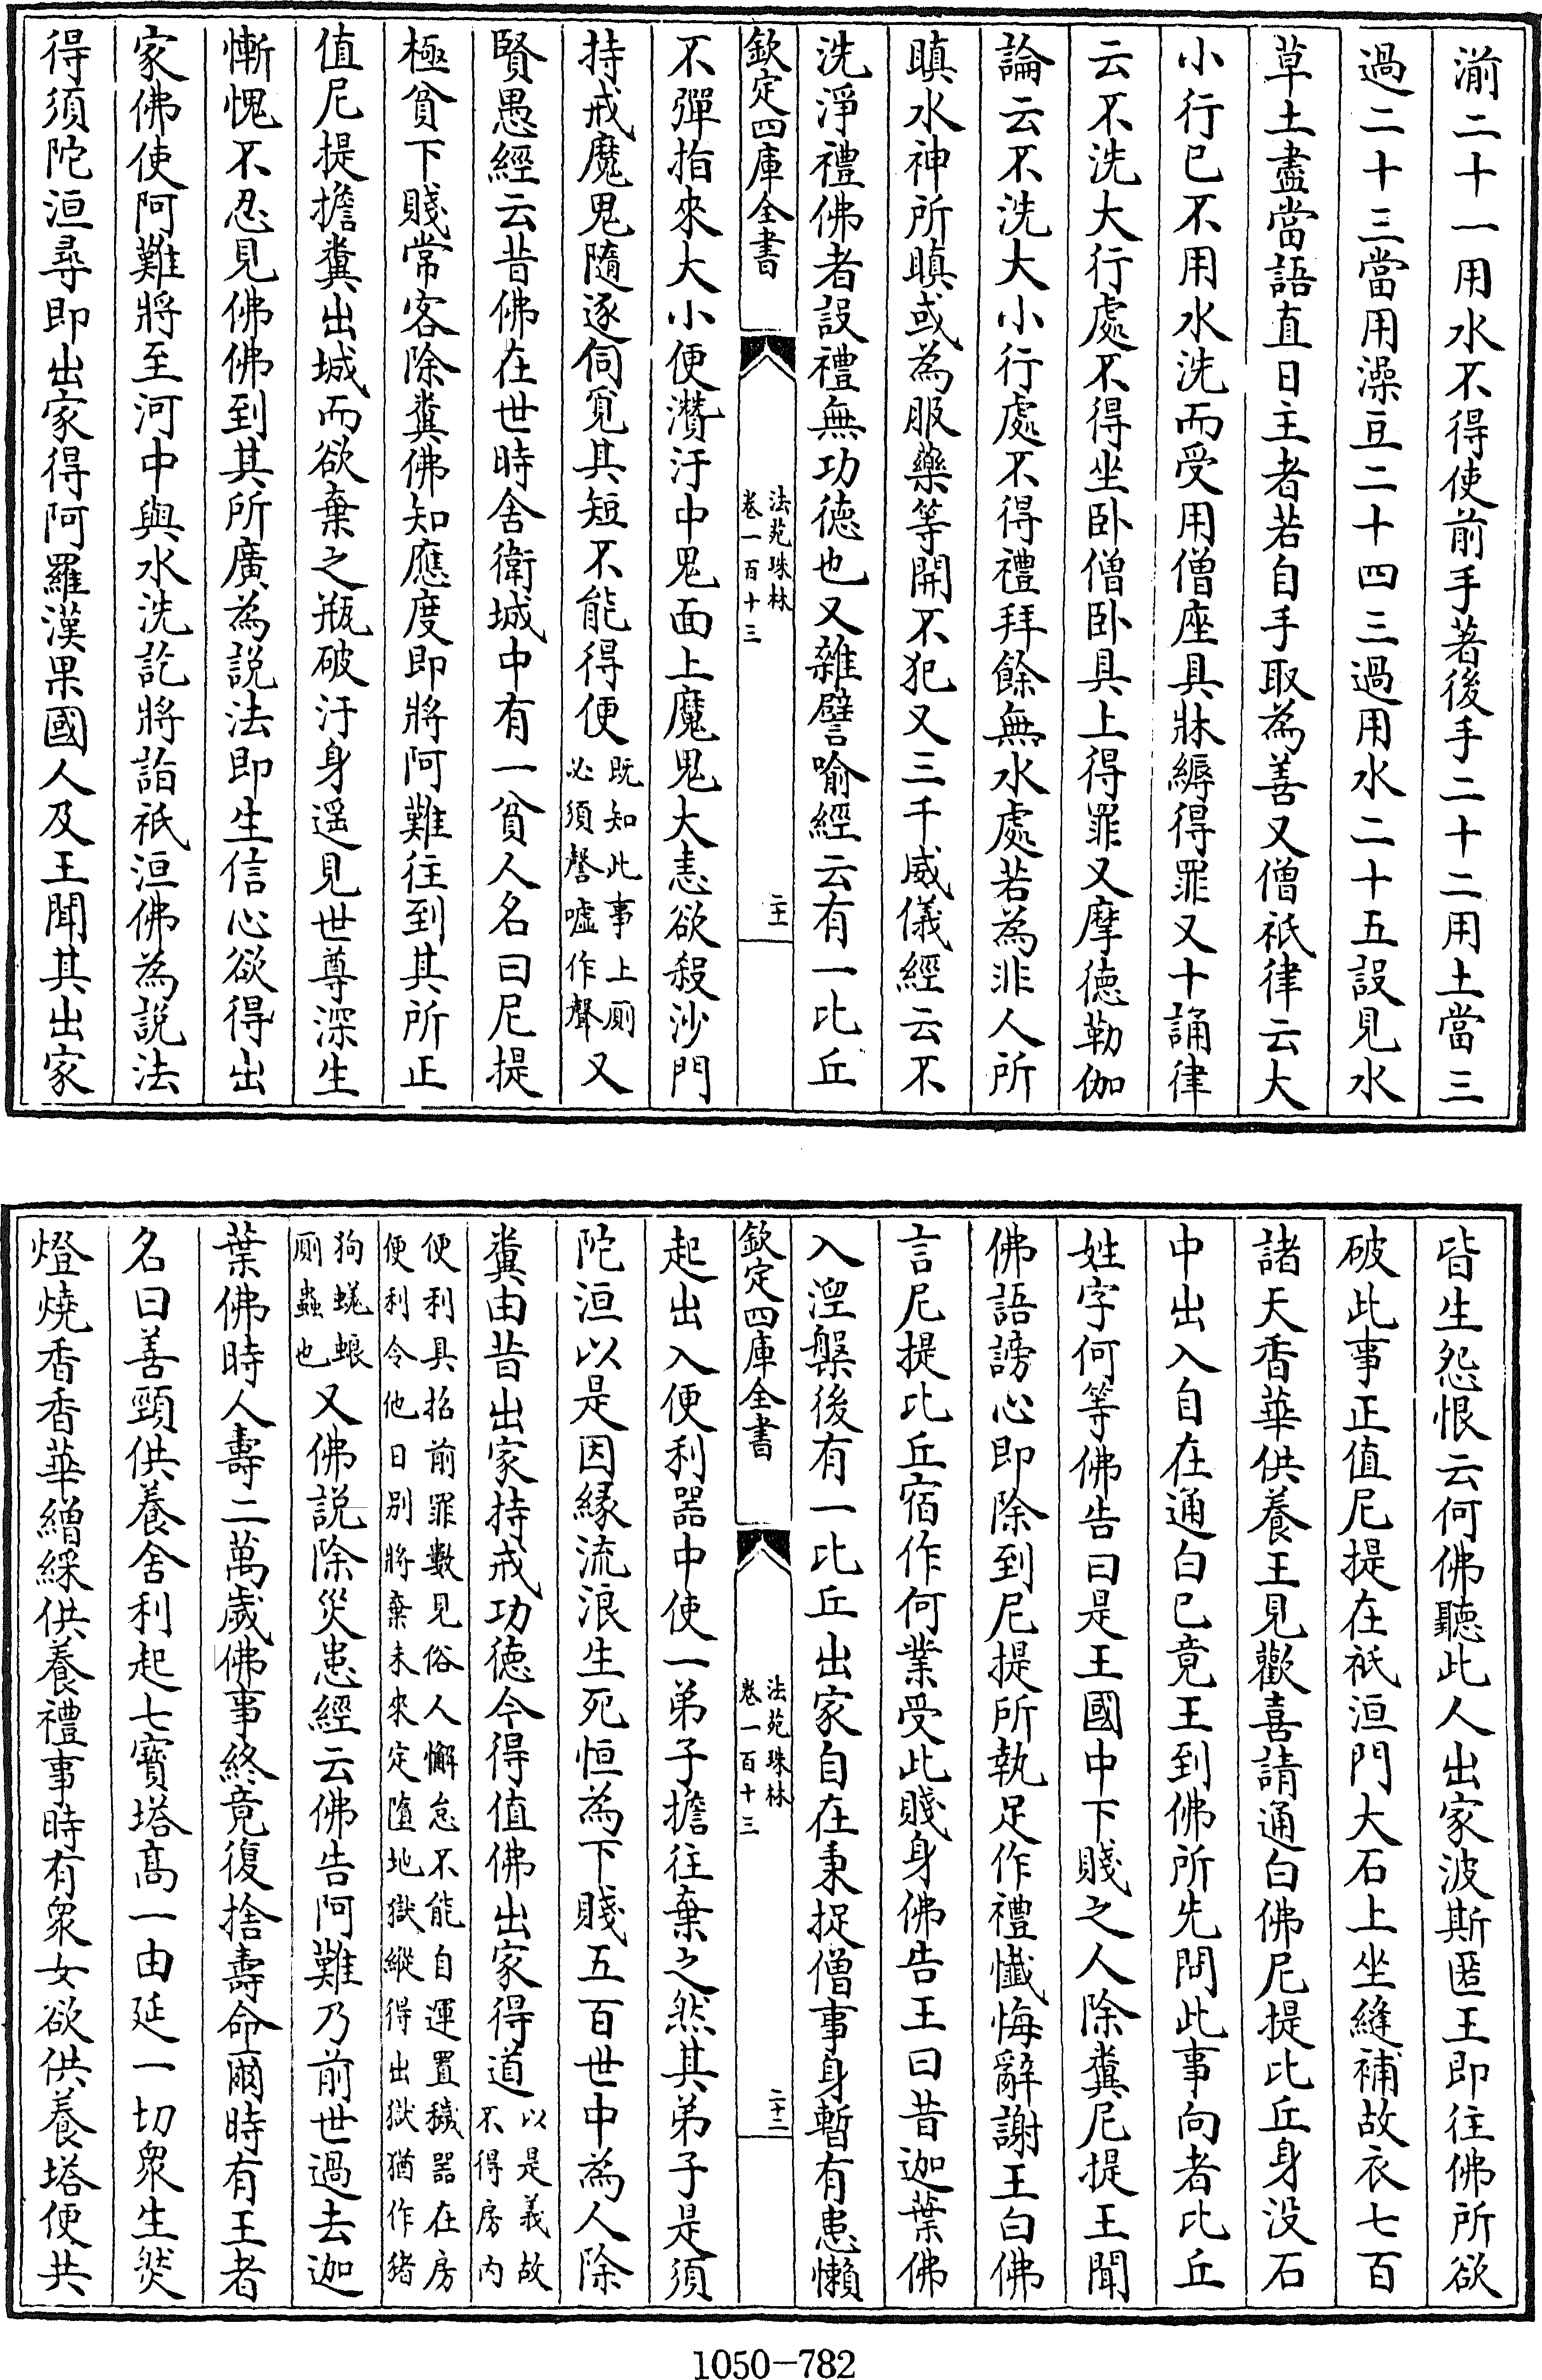 湔二十一用水不得使前手著後手二十二用土當三
過二十三當用澡豆二十四三過用水二十五設見水
草土盡當語直日主者若自手取為善又僧祇律云大
小行已不用水洗而受用僧座具牀縟得罪又十誦律
云不洗大行處不得坐卧僧卧具上得罪又摩德勒伽
論云不洗大小行處不得禮拜餘無水處若為非人所
瞋水神所瞋或為服藥等開不犯又三千威儀經云不
洗淨禮佛者設禮無功德也又雜譬喻經云有一比丘
欽定四庫全書
法苑珠林
卷一百十三
二十一
不彈指來大小便濽汙中鬼面上魔鬼大恚欲殺沙門
持戒魔鬼隨逐伺覓其短不能得便既知此事上厠必須謦噓作聲又
賢愚經云昔佛在世時舍衛城中有一貧人名曰尼提
極貧下賤常客除糞佛知應度即將阿難往到其所正
值尼提擔糞出城而欲棄之瓶破汙身遥見世尊深生
慚愧不忍見佛佛到其所廣為説法即生信心欲得出
家佛使阿難將至河中與水洗訖將詣祇洹佛為説法
得須陀洹尋即出家得阿羅漢果國人及王聞其出家
皆生怨恨云何佛聽此人出家波斯匿王即往佛所欲
破此事正值尼提在祇洹門大石上坐縫補故衣七百
諸天香華供養王見歡喜請通白佛尼提比丘身没石
中出入自在通白已竟王到佛所先問此事向者比丘
姓字何等佛告曰是王國中下賤之人除糞尼提王聞
佛語謗心即除到尼提所執足作禮懺悔辭謝王白佛
言尼提比丘宿作何業受此賤身佛告王曰昔迦葉佛
入涅槃後有一比丘出家自在秉捉僧事身暫有患懶
欽定四庫全書
法苑珠林
卷一百十三
二十二
起出入便利器中使一弟子擔往棄之然其弟子是須
陀洹以是因緣流浪生死恒為下賤五百世中為人除
糞由昔出家持戒功德今得值佛出家得道以是義故不得房内
便利具招前罪數見俗人懈怠不能自運置穢器在房
便利令他日别將棄未來定墮地獄縱得出獄猶作猪
狗蜣蜋厠蟲也又佛説除災患經云佛告阿難乃前世過去迦
葉佛時人壽二萬歲佛事終竟復捨壽命爾時有王者
名曰善頸供養舍利起七寶塔髙一由延一切衆生㷊
燈燒香香華繒綵供養禮事時有衆女欲供養塔便共
1050-782